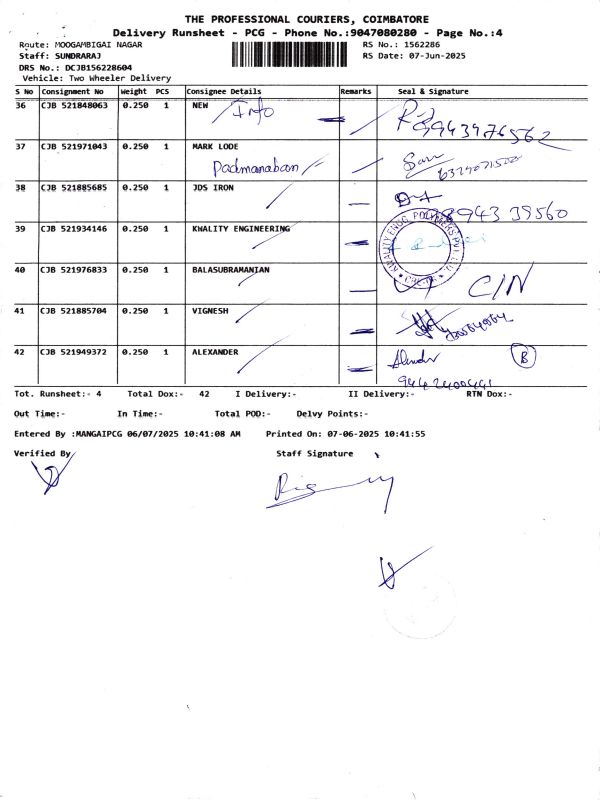 THE PROFESSIONAL COURIERS, COIMBATORE
Delivery Runsheet - PCG - Phone No.:9047080280 - Page No.:4
Route: MOOGAMBIGAI NAGAR RS No.: 1562286
Staff: SUNDRARAJ RS Date: 07-Jun-2025
DRS No.: DCJB156228604
Vehicle: Two Wheeler Delivery
S No Consignment No Weight PCS Consignee Details Remarks Seal & Signature
36 CJB 521848063 0.250 1 NEW Info
9943976562
37 CJB 521971043 0.250 1 MARK LODE
Padmanaban
38 CJB 521885685 0.250 1 JDS IRON
39 CJB 521934146 0.250 1 KWALITY ENGINEERING
KWALITY ENGG. POLYMERS PVT LTD.
40 CJB 521976833 0.250 1 BALASUBRAMANIAN C/N
41 CJB 521885704 0.250 1 VIGNESH
42 CJB 521949372 0.250 1 ALEXANDER B
9442400441
Tot. Runsheet:- 4 Total Dox:- 42 I Delivery:- II Delivery:- RTN Dox:-
Out Time:- In Time:- Total POD:- Delvy Points:-
Entered By :MANGAIPCG 06/07/2025 10:41:08 AM Printed On: 07-06-2025 10:41:55
Verified By Staff Signature